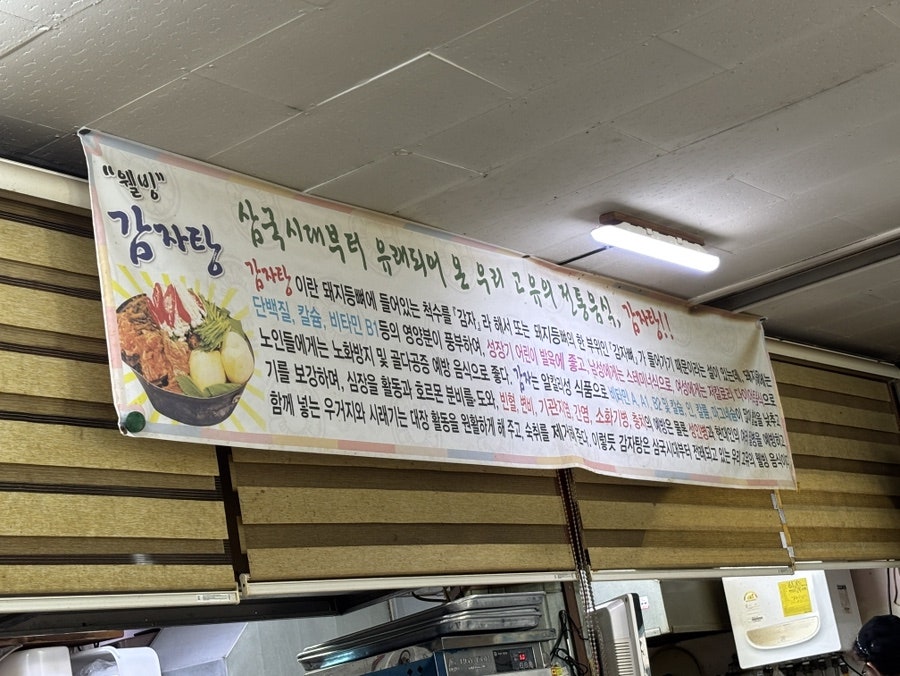 "웰빙"
감자탕
삼국시대부터 유래되어 온 우리 고유의 전통음식, 감자탕!!
감자탕 이란 돼지등뼈에 들어있는 척수를 「감자」라 해서 또는 돼지등뼈의 한 부위인 '감자뼈' 가 들어가기 때문이라는 설이 있는데, 돼지등뼈는
단백질, 칼슘, 비타민 B1등의 영양분이 풍부하여, 성장기 어린이 발육에 좋고, 남성에게는 스테미너식으로, 여성에게는 저칼로리 다이어트음식으로
노인들에게는 노화방지 및 골다공증 예방 음식으로 좋다. 감자는 알칼리성 식품으로 비타민 A, A1, B2 및 칼슘 인, 칼륨, 마그네슘이 혈압을 낮추고
기를 보강하며, 심장을 활동과 호르몬 분비를 도와, 빈혈, 변비, 기관지염, 간염, 소화기병, 충치의 예방은 물론 성인병과 현대인의 예방하고,
함께 넣는 우거지와 시래기는 대장 활동을 원활하게 해 주고, 숙취를 제거해준다. 이렇듯 감자탕은 삼국시대부터 전래되고 있는 우리 고유의 웰빙 음식이다.